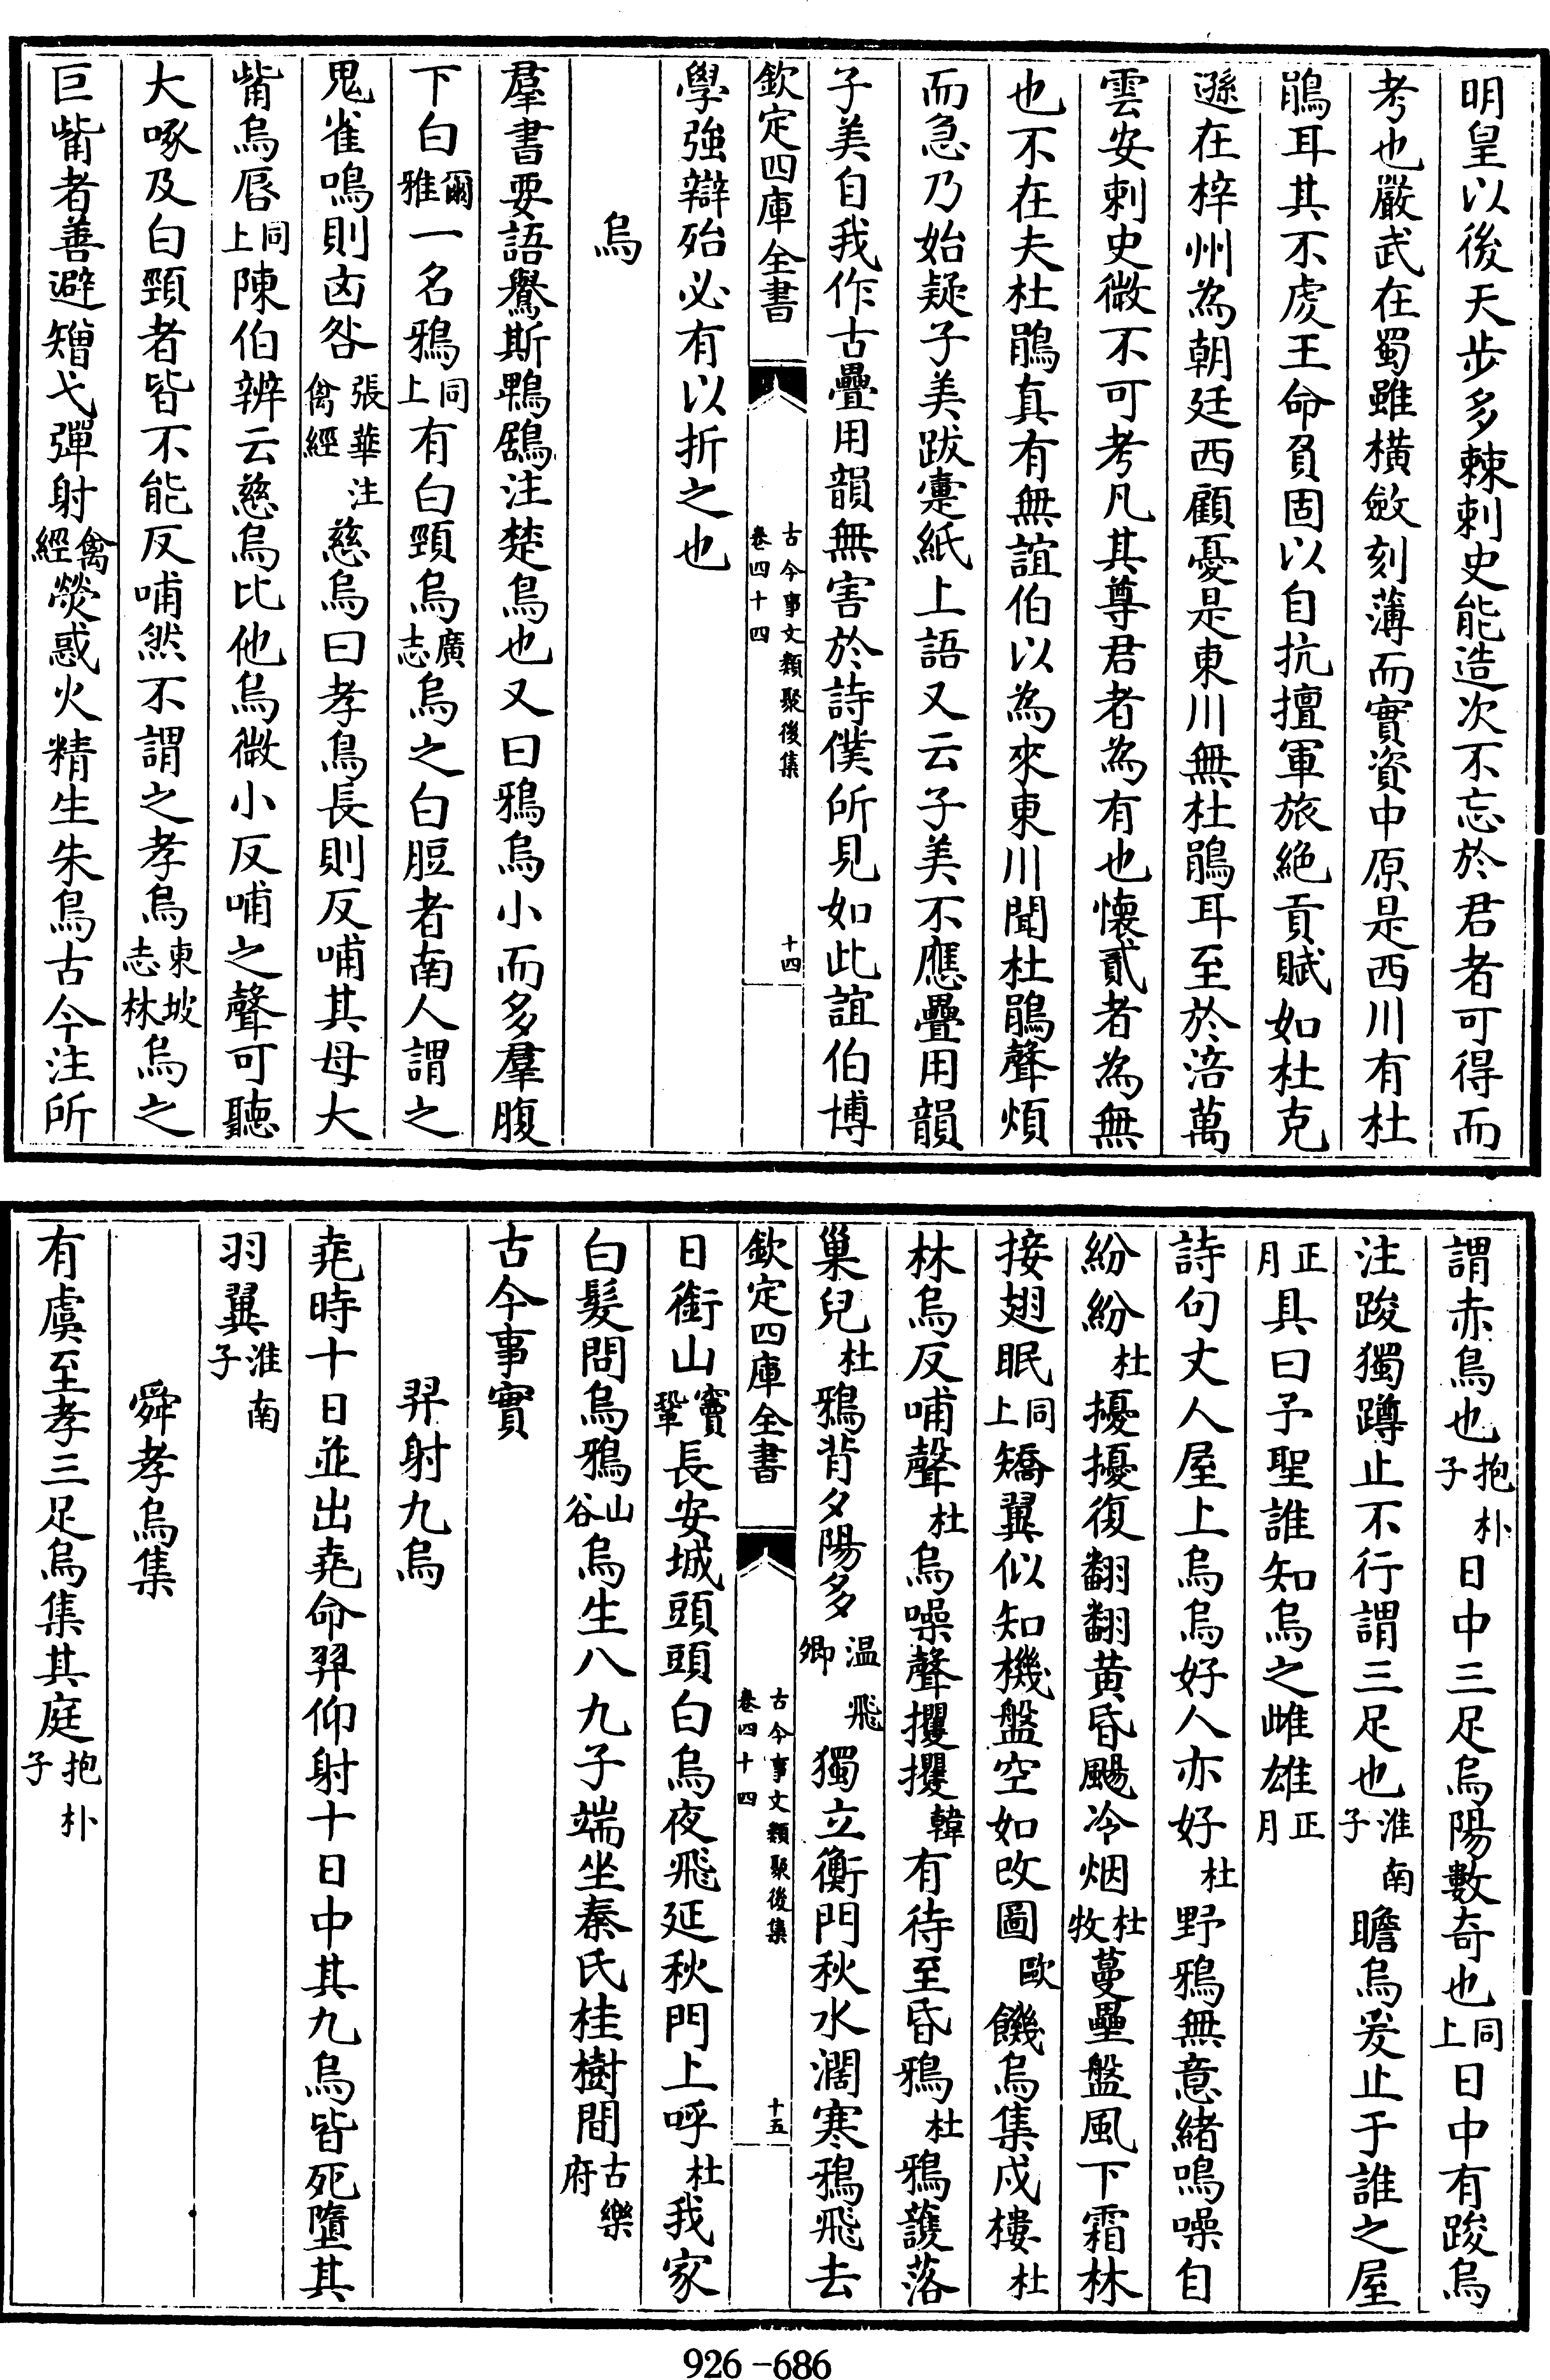 明皇以後天步多棘刺史能造次不忘於君者可得而
考也嚴武在蜀雖橫斂刻薄而實資中原是西川有杜
鵑耳其不虔王命負固以自抗擅軍旅絕貢賦如杜克
遜在梓州為朝廷西顧憂是東川無杜鵑耳至於涪萬
雲安刺史微不可考凡其尊君者為有也懐貳者為無
也不在夫杜鵑真有無誼伯以為來東川聞杜鵑聲煩
而急乃始疑子美跋疐紙上語又云子美不應疊用韻
子美自我作古疊用韻無害於詩僕所見如此誼伯博
欽定四庫全書 古今事文類聚後集 卷四十四 十四
學強辯殆必有以折之也
烏
羣書要語鸒斯鵯鶋注楚烏也又曰鴉烏小而多羣腹
下白爾雅一名鴉同上有白頸烏廣志烏之白脰者南人謂之
鬼雀鳴則凶咎張華注禽經慈烏曰孝鳥長則反哺其母大
觜烏唇同上陳伯辨云慈烏比他烏微小反哺之聲可聽
大啄及白頸者皆不能反哺然不謂之孝烏東坡志林烏之
巨觜者善避矰弋彈射禽經熒惑火精生朱鳥古今注所
謂赤鳥也抱朴子日中三足烏陽數奇也同上日中有踆烏
注踆獨蹲止不行謂三足也淮南子瞻烏爰止于誰之屋
正月具曰予聖誰知烏之雌雄正月
詩句丈人屋上烏烏好人亦好杜野鴉無意緒鳴噪自
紛紛杜擾擾復翻翻黄昏颺冷烟杜牧蔓壘盤風下霜林
接翅眠同上矯翼似知機盤空如改圖歐饑烏集戍樓杜
林烏反哺聲杜烏噪聲攫攫韓有待至昏鴉杜鴉護落
巢兒杜鴉背夕陽多温飛卿獨立衡門秋水濶寒鴉飛去
欽定四庫全書 古今事文類聚後集 卷四十四 十五
日銜山竇鞏長安城頭頭白烏夜飛延秋門上呼杜我家
白髮問烏鴉山谷烏生八九子端坐秦氏桂樹間古樂府
古今事實
羿射九烏
堯時十日並出堯命羿仰射十日中其九烏皆死墮其
羽翼淮南子
舜孝烏集
有虞至孝三足烏集其庭抱朴子
926-686